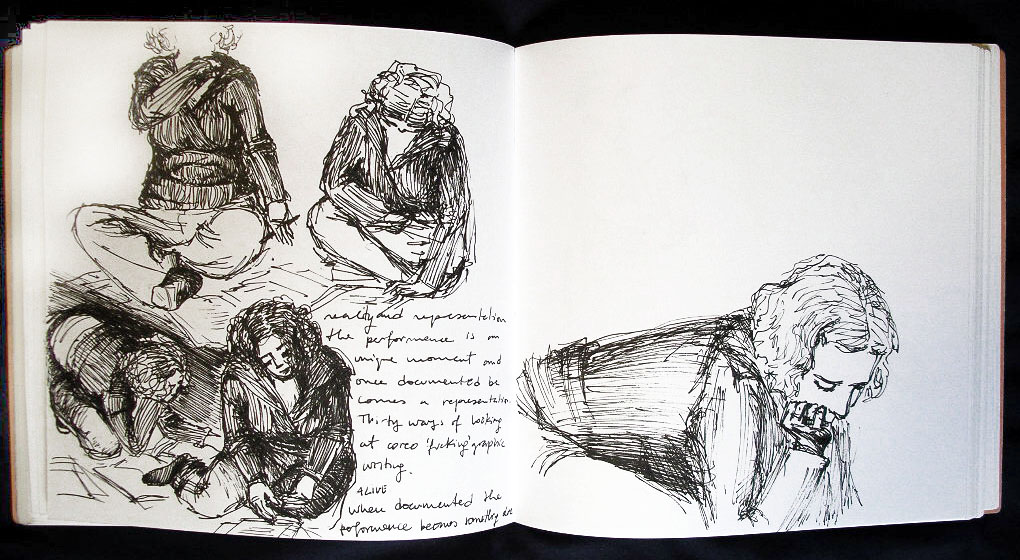 reality and representation
the performance is an
unique moment and
once documented be
comes a representation.
Thirty ways of looking
at coreo 'fucking' graphic
writing.
ALIVE
when documented the
performance becomes something else